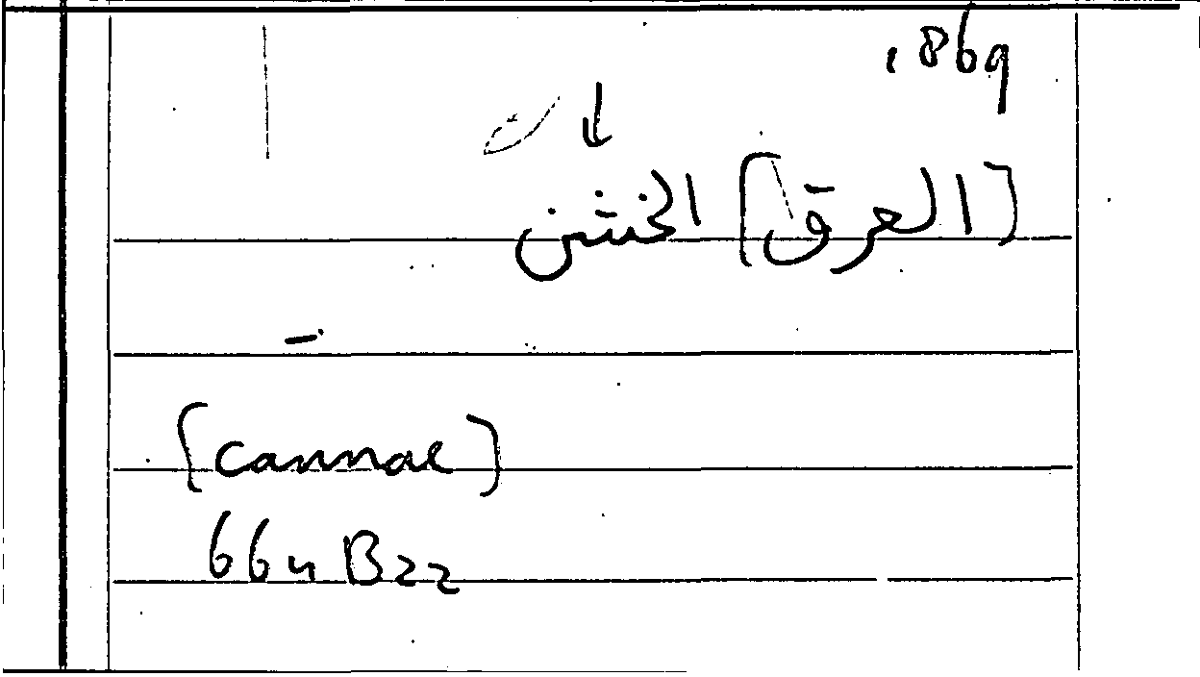 .869
[العرق] الخشن
[cannae]
664 B22